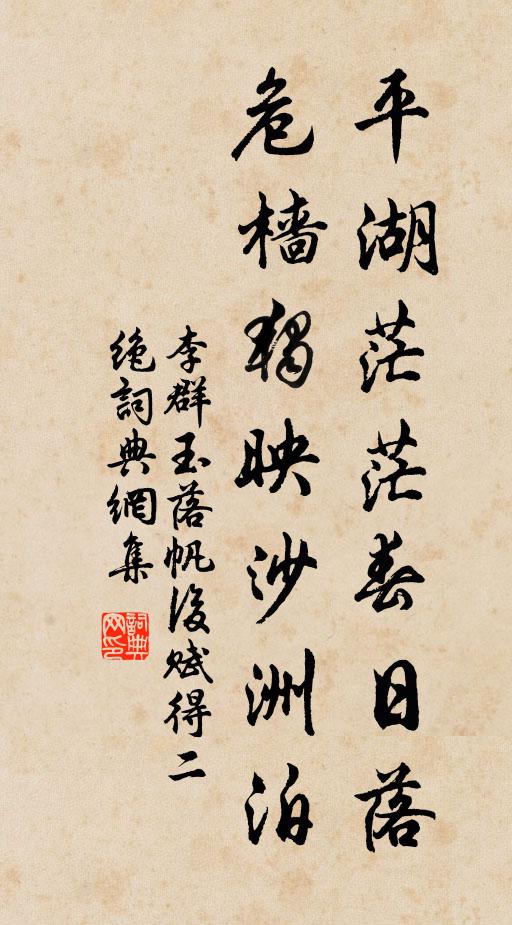 平湖茫茫春日落
危檣獨映沙洲泊
李群玉落帆後賦得二
絶詞典網集
詞典
网印